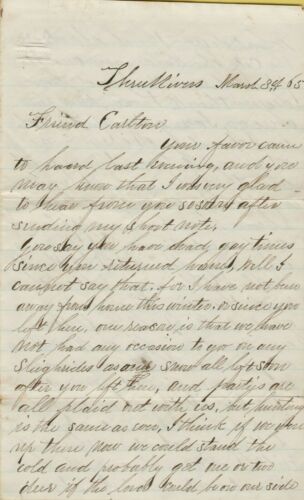 Three Rivers March 3d 65
Friend Carlton
Your favor came
to hand last evening, and you
may know that I was very glad
to hear from you so soon after
sending my short note.
You say you have had gay times
since you returned home, well I
cannot say that. for I have not been
away from home this winter. since you
left here, one reason is that we have
not had any occasion to go on any
Sleighrides as our snow all left soon
after you left here, and partys are
all plaid out with us, but hunting
is the same as ever, I think if we you
up here now we could stand the
cold and probably get one or two
deer if the luck would be on our side